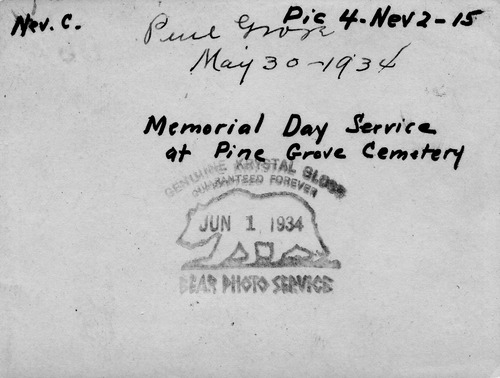 Nev. C.
Pic 4-Nev 2-15
Pine Grove
May 30-1934
Memorial Day Service
at Pine Grove Cemetery
GENUINE KRYSTAL GLOSS
GUARANTEED FOREVER
JUN 1 1934
BEAR PHOTO SERVICE